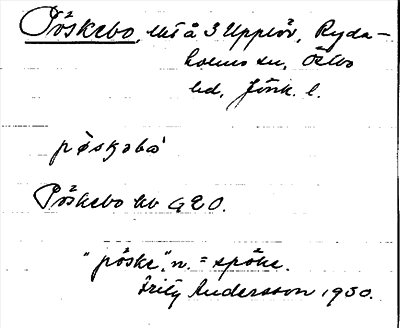 Påskebo, lht å 3 Upplöv, Ryda-
holms sn, Östbo
hd, Jönk. l.
påskabo
Påskebo kb 920.
"påske", n. = spöke.
Andersson 1930.